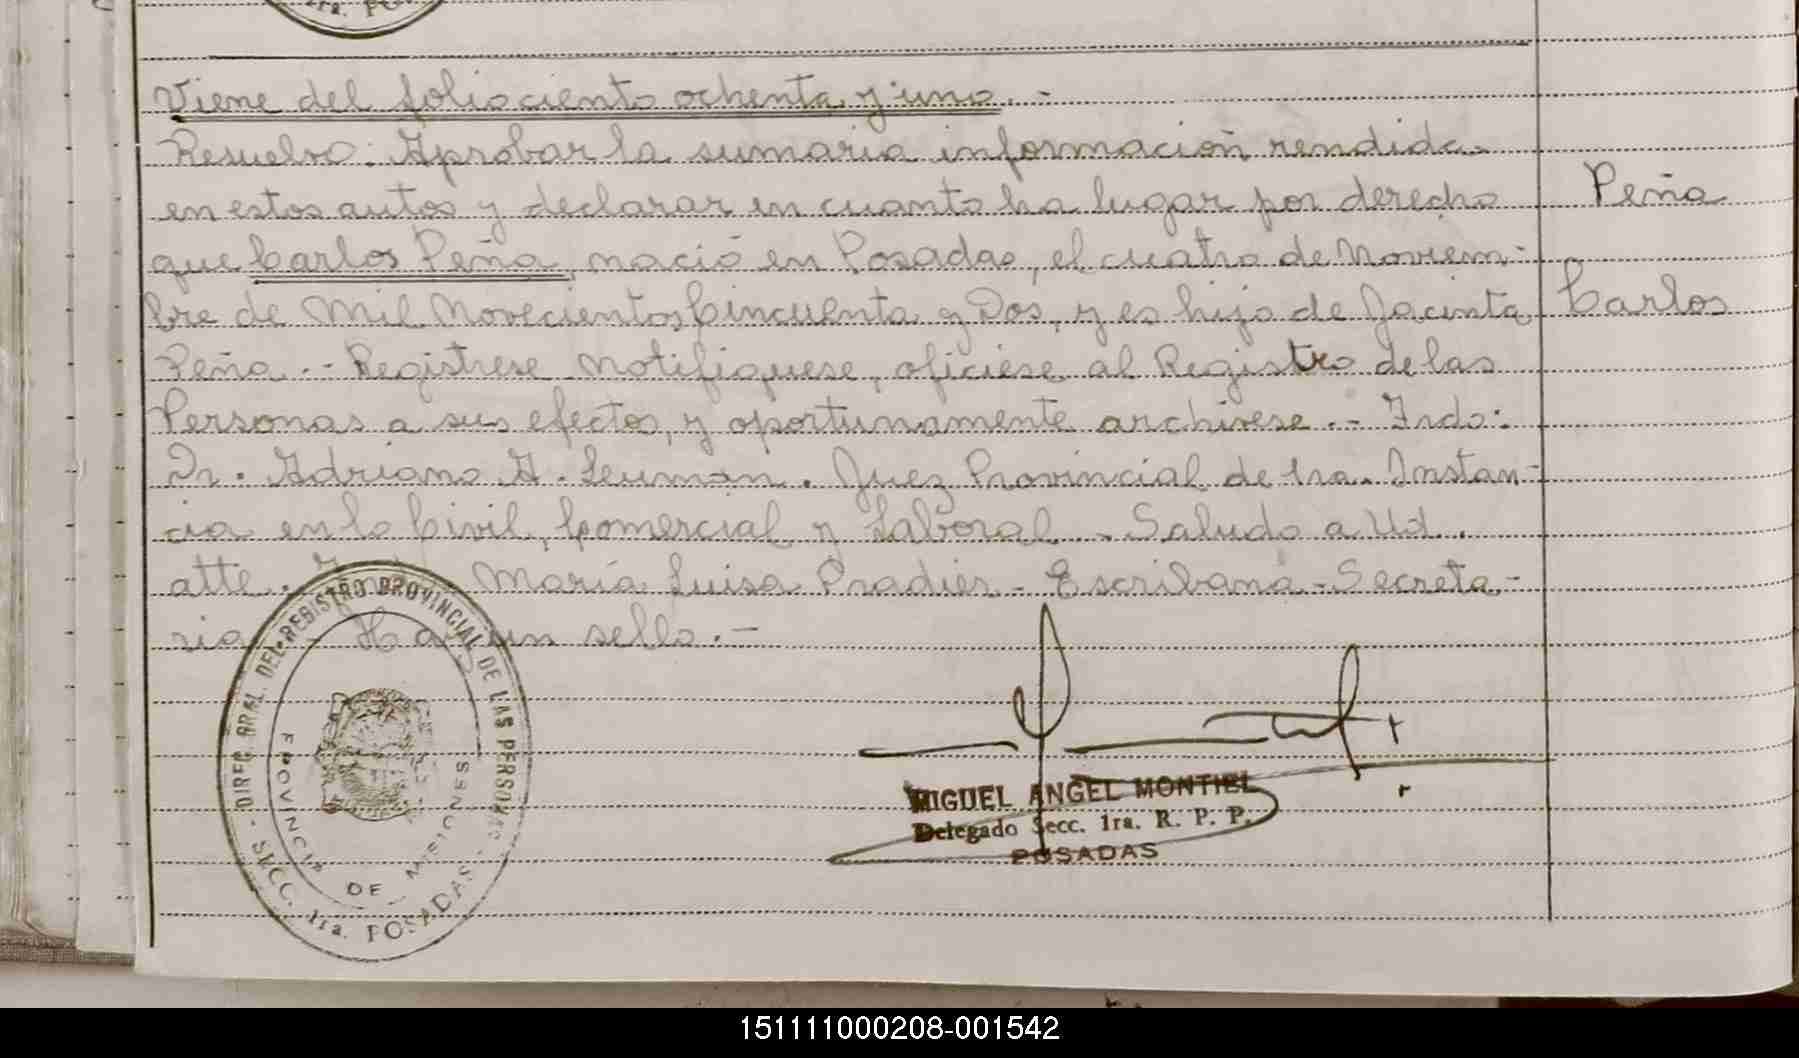 1ra. PO
Viene del folio ciento ochenta y uno. -
Resuelvo: Aprobar la sumaria información rendida
en estos autos y declarar en cuanto ha lugar por derecho
Peña
que Carlos Peña, nació en Posadas, el cuatro de Noviem-
bre de Mil Novecientos Cincuenta y Dos, y es hijo de Jacinta
Carlos
Peña. - Registrese Notifiquese, oficiese al Registro de las
Personas a sus efectos, y oportunamente archivese. - Fndo:
Dr. Adriano A. Leuman. Juez Provincial de 1ra. Instan-
cia en lo Civil, Comercial y Laboral - Saludo a Ud.
atte. María Luisa Pradier - Escribana - Secreta-
ria - Hay un sello. -
DIREC. GRAL. DEL REGISTRO PROVINCIAL DE LAS PERSONAS
PROVINCIA DE MISIONES
- SECC. 1ra. POSADAS -
MIGUEL ANGEL MONTIEL
Delegado Secc. 1ra. R. P. P.
POSADAS
151111000208-001542